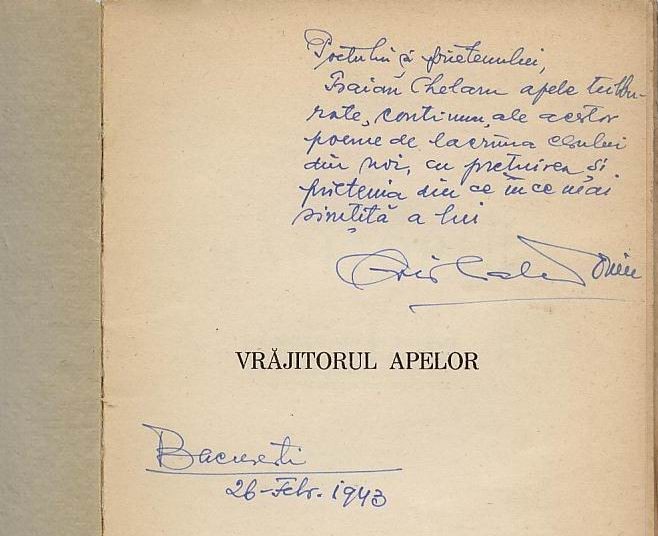 Poetului și prietenului,
Traian Chelaru apele tulbu-
rate, continuu, ale acestor
poeme de lacrima
din noi, cu prețuirea și
prietenia din ce în ce mai
simțită a lui
VRĂJITORUL APELOR
București
26-Febr. 1943